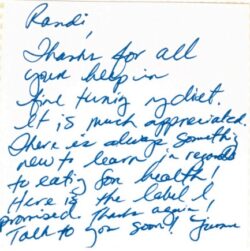 Randi,
Thanks for all
your help in
fine tuning my diet.
It is much appreciated.
There is always something
new to learn in regards
to eating for health!
Here is the label I
promised. Thanks again!
Talk to you soon!